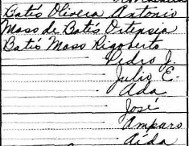 Batís Olivera Antonio
Maso de Batís Ortensia
Batís Maso Rigoberto
Pedro J.
Julio E.
Ada
José
Amparo
Aida